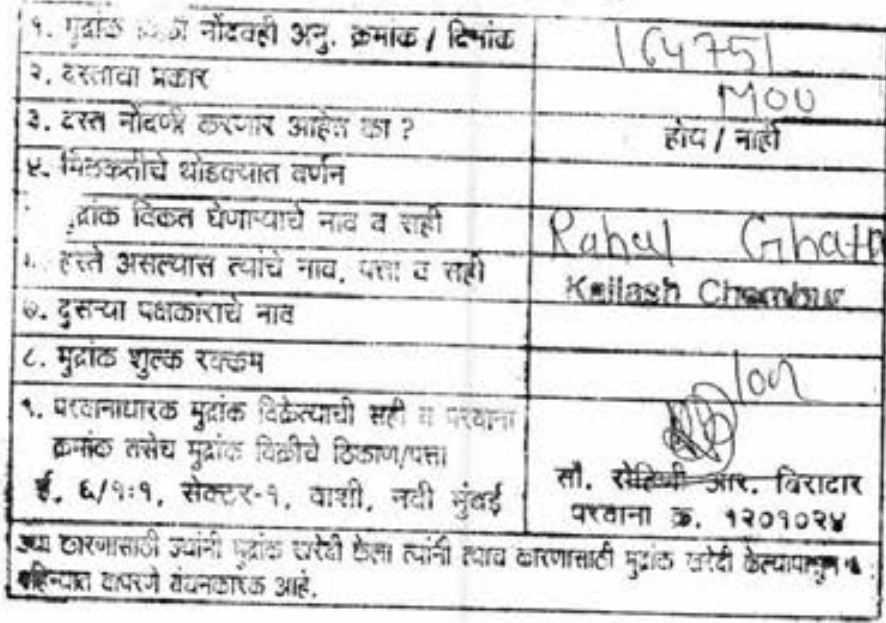 १. मुद्रांक नोंदवही अनु. क्रमांक / दिनांक 164751
२. दस्ताचा प्रकार MOU
३. दस्त नोंदणी करणार आहेत का ? होय / नाही
४. मिळकतीचे थोडक्यात वर्णन
मुद्रांक विकत घेणाऱ्याचे नाव व सही Rahul
हस्ते असल्यास त्यांचे नाव, पत्ता व सही Kailash Chembur
७. दुसऱ्या पक्षकाराचे नाव
८. मुद्रांक शुल्क रक्कम
९. परवानाधारक मुद्रांक विक्रेत्याची सही व परवाना
क्रमांक तसेच मुद्रांक विक्रीचे ठिकाण/पत्ता
ई. ६/१:१, सेक्टर-१, वाशी, नवी मुंबई
सौ. रोहिणी आर. बिरादार
परवाना क्र. १२०१०२४
ज्या कारणासाठी ज्यांनी मुद्रांक खरेदी केला त्यांनी त्याच कारणासाठी मुद्रांक खरेदी केल्यापासून ६
महिन्यात वापरणे बंधनकारक आहे.